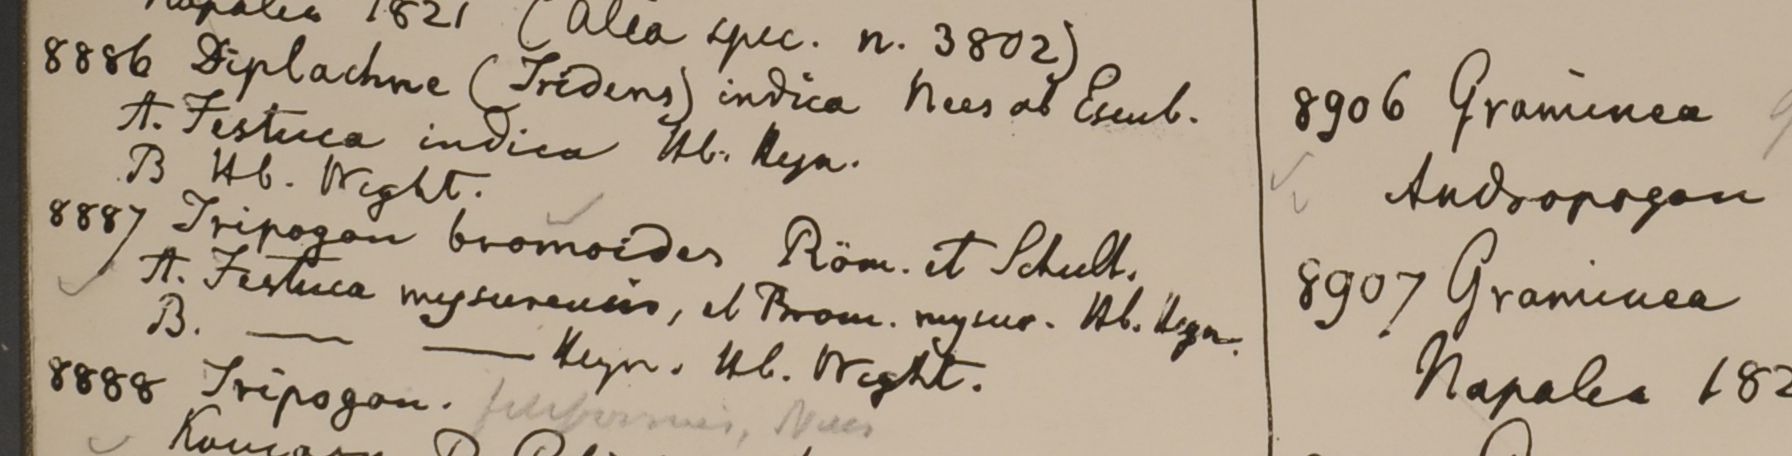 Napalea 1821 (alia spec. n. 3802)
8886 Diplachne (Tridens) indica Nees ab Esenb.
A. Festuca indica Hb. Heyn.
B Hb. Wight.
8887 Tripogon bromoides Röm. et Schult.
A. Festuca mysurensis, et Brom. mysur. Hb. Heyn.
B. — — Heyn. Hb. Wight.
8888 Tripogon. filiformis, Nees
8906 Graminea
Andropogon
8907 Graminea
Napalea 182